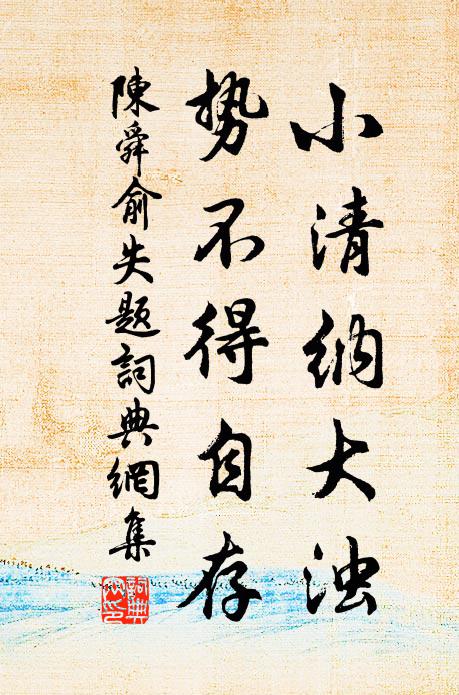 小清纳大浊
势不得自存
陳舜俞失题詞典網集